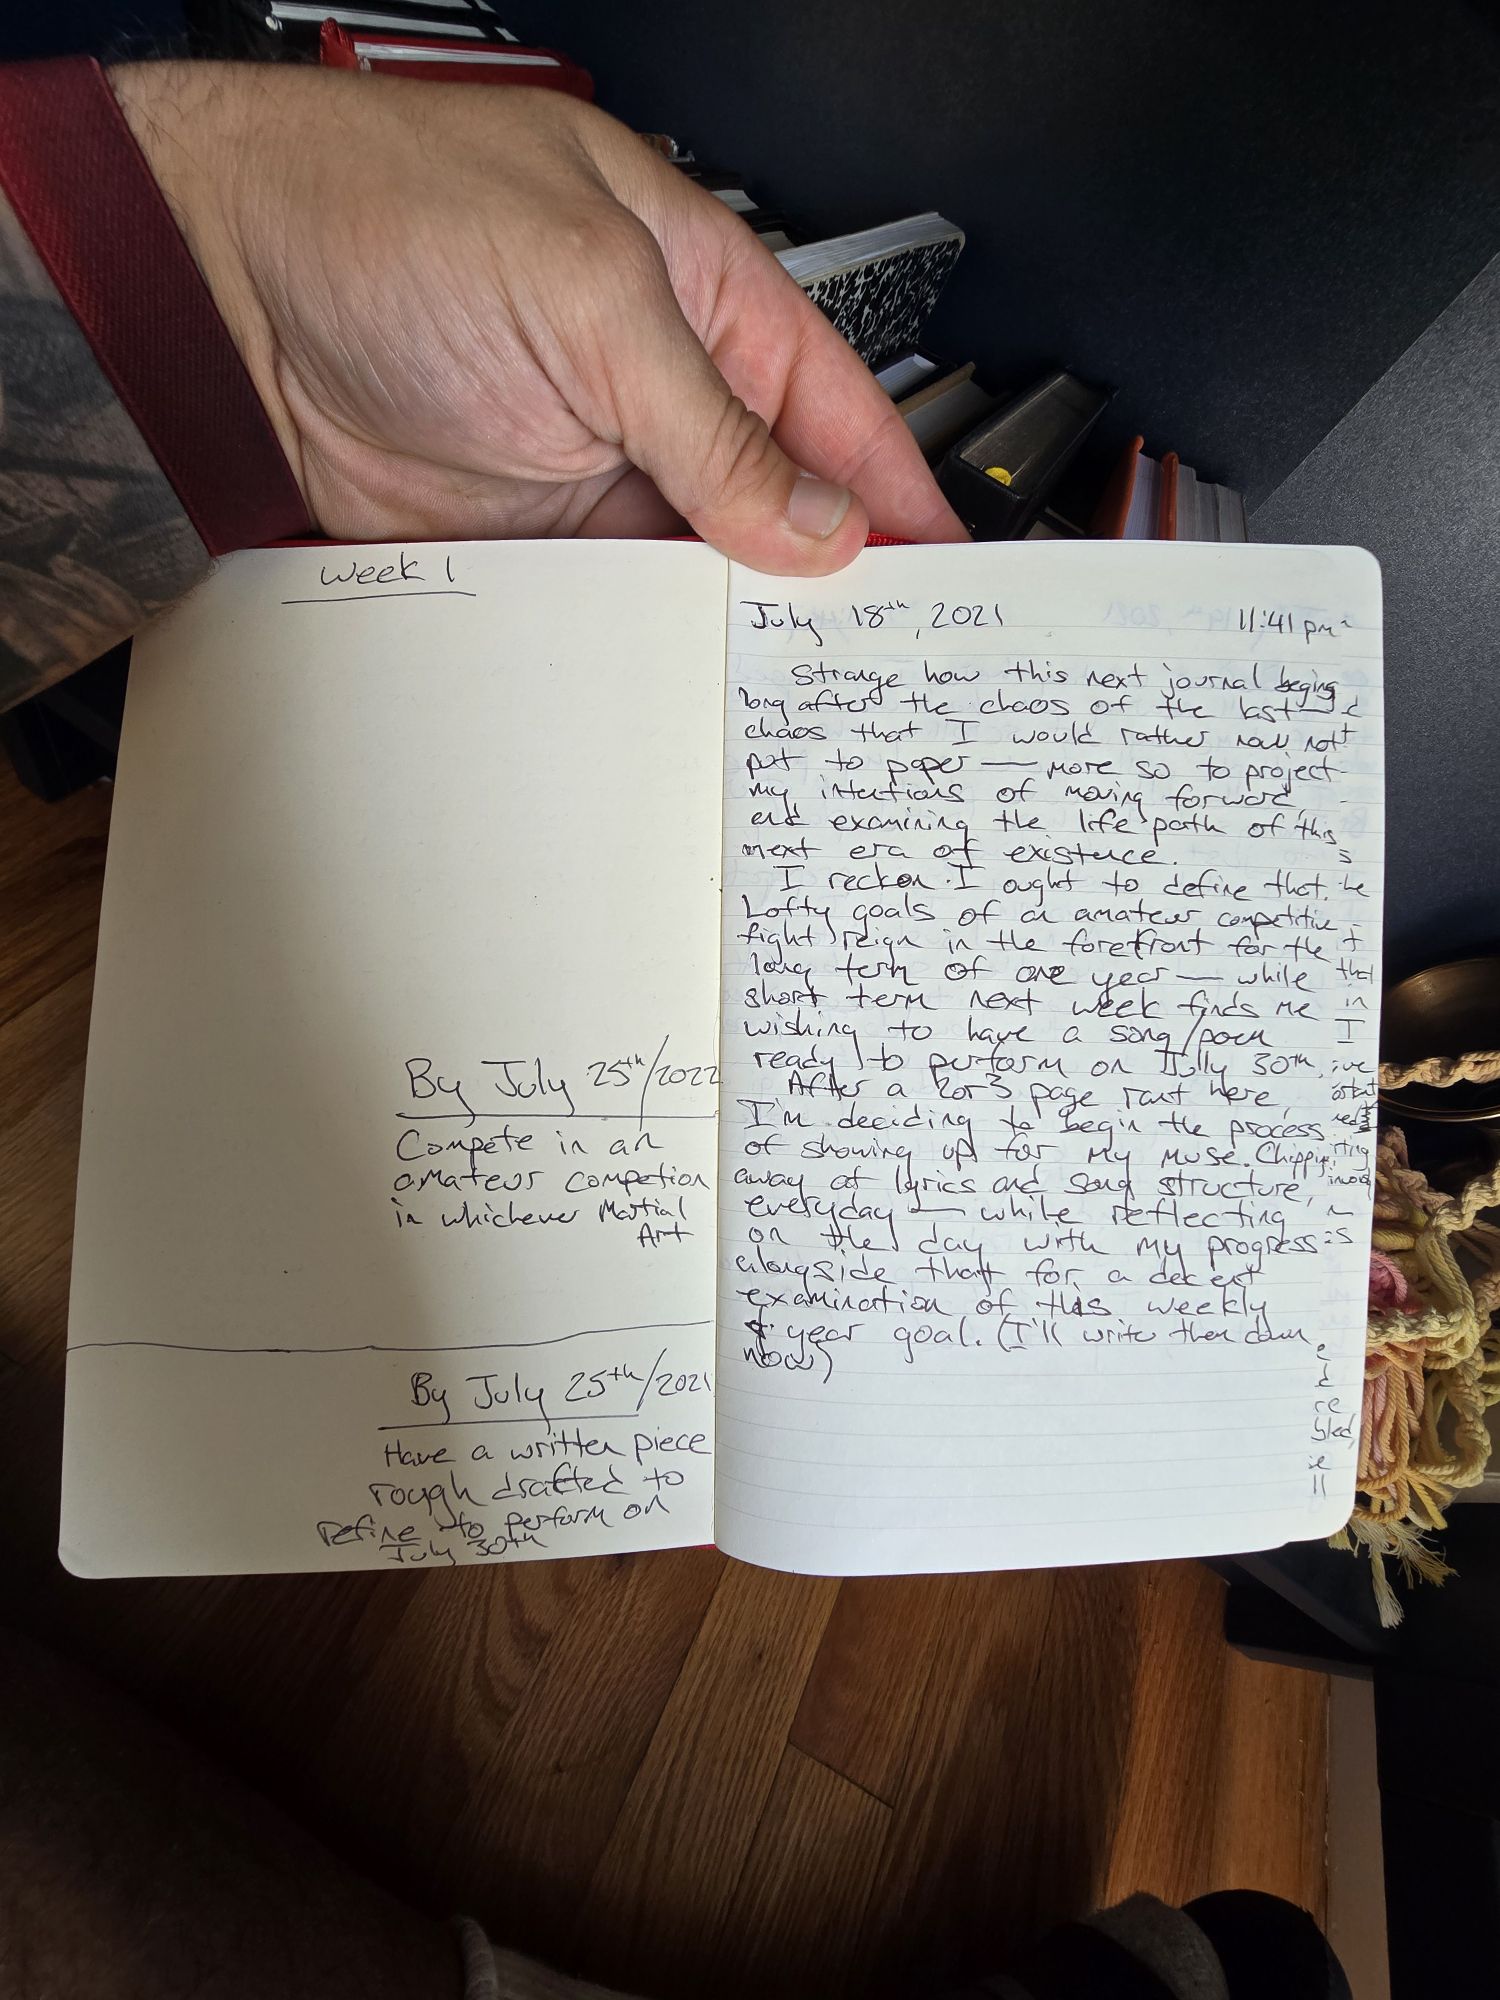 Week 1
By July 25th/2022
Compete in an
amateur competion
in whichever Martial
Art
By July 25th/2021
Have a written piece
rough drafted to
refine to perform on
July 30th
July 18th, 2021 11:41 pm
Strange how this next journal begins
long after the chaos of the last —
chaos that I would rather now not
put to paper — more so to project
my intentions of moving forward,
and examining the life path of this
next era of existence.
I reckon I ought to define that.
Lofty goals of an amateur competitive
fight reign in the forefront for the
long term of one year — while
short term next week finds me
wishing to have a song/poem
ready to perform on July 30th.
After a 2 or 3 page rant here,
I'm deciding to begin the process
of showing up for my muse. Chipping
away at lyrics and song structure,
everyday — while reflecting
on the day with my progress
alongside that for a decent
examination of this weekly
& year goal. (I'll write them down
now)